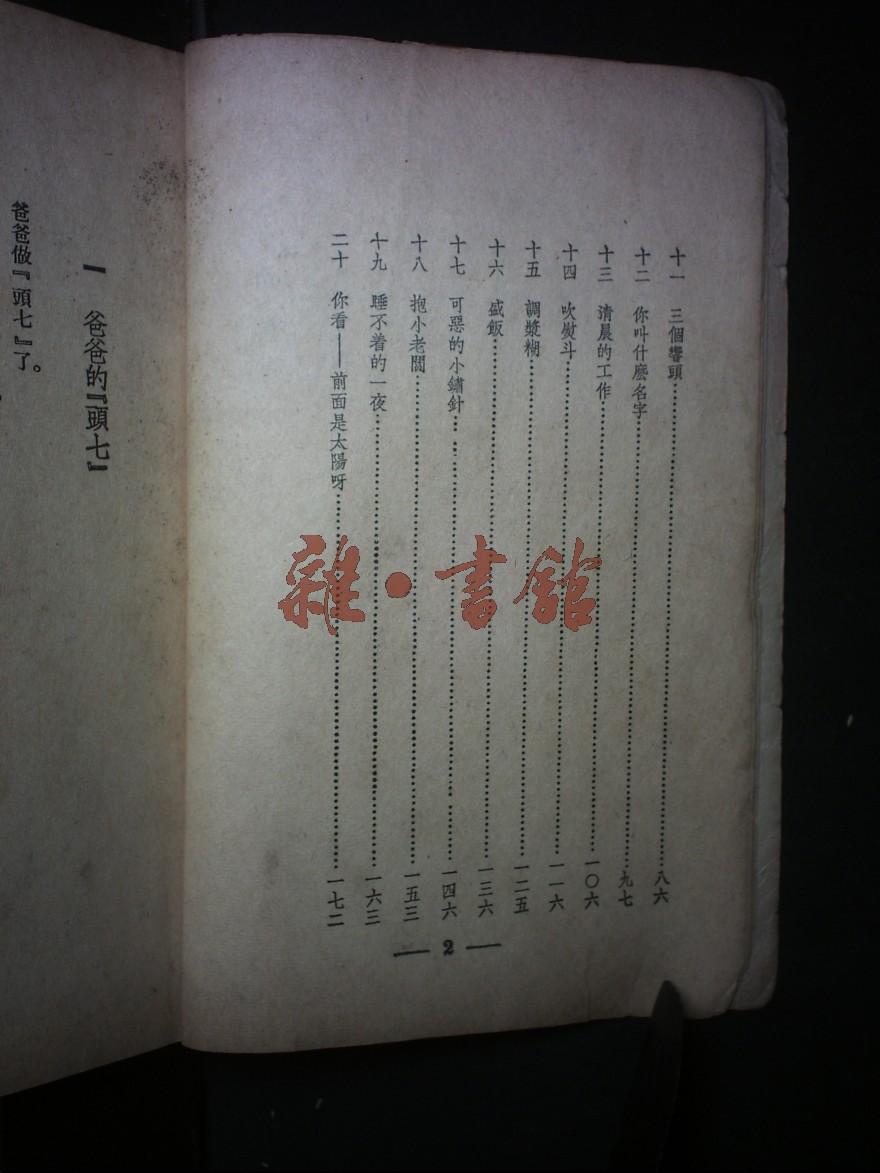 十一　三個響頭……八六
十二　你叫什麽名字……九七
十三　清晨的工作……一〇六
十四　吹熨斗……一一六
十五　調漿糊……一二五
十六　盛飯……一三六
十七　可惡的小鏽針……一四六
十八　抱小老闆……一五三
十九　睡不着的一夜……一六三
二十　你看——前面是太陽呀……一七二
— 2 —
一　爸爸的『頭七』
爸爸做『頭七』了。
雜·書館